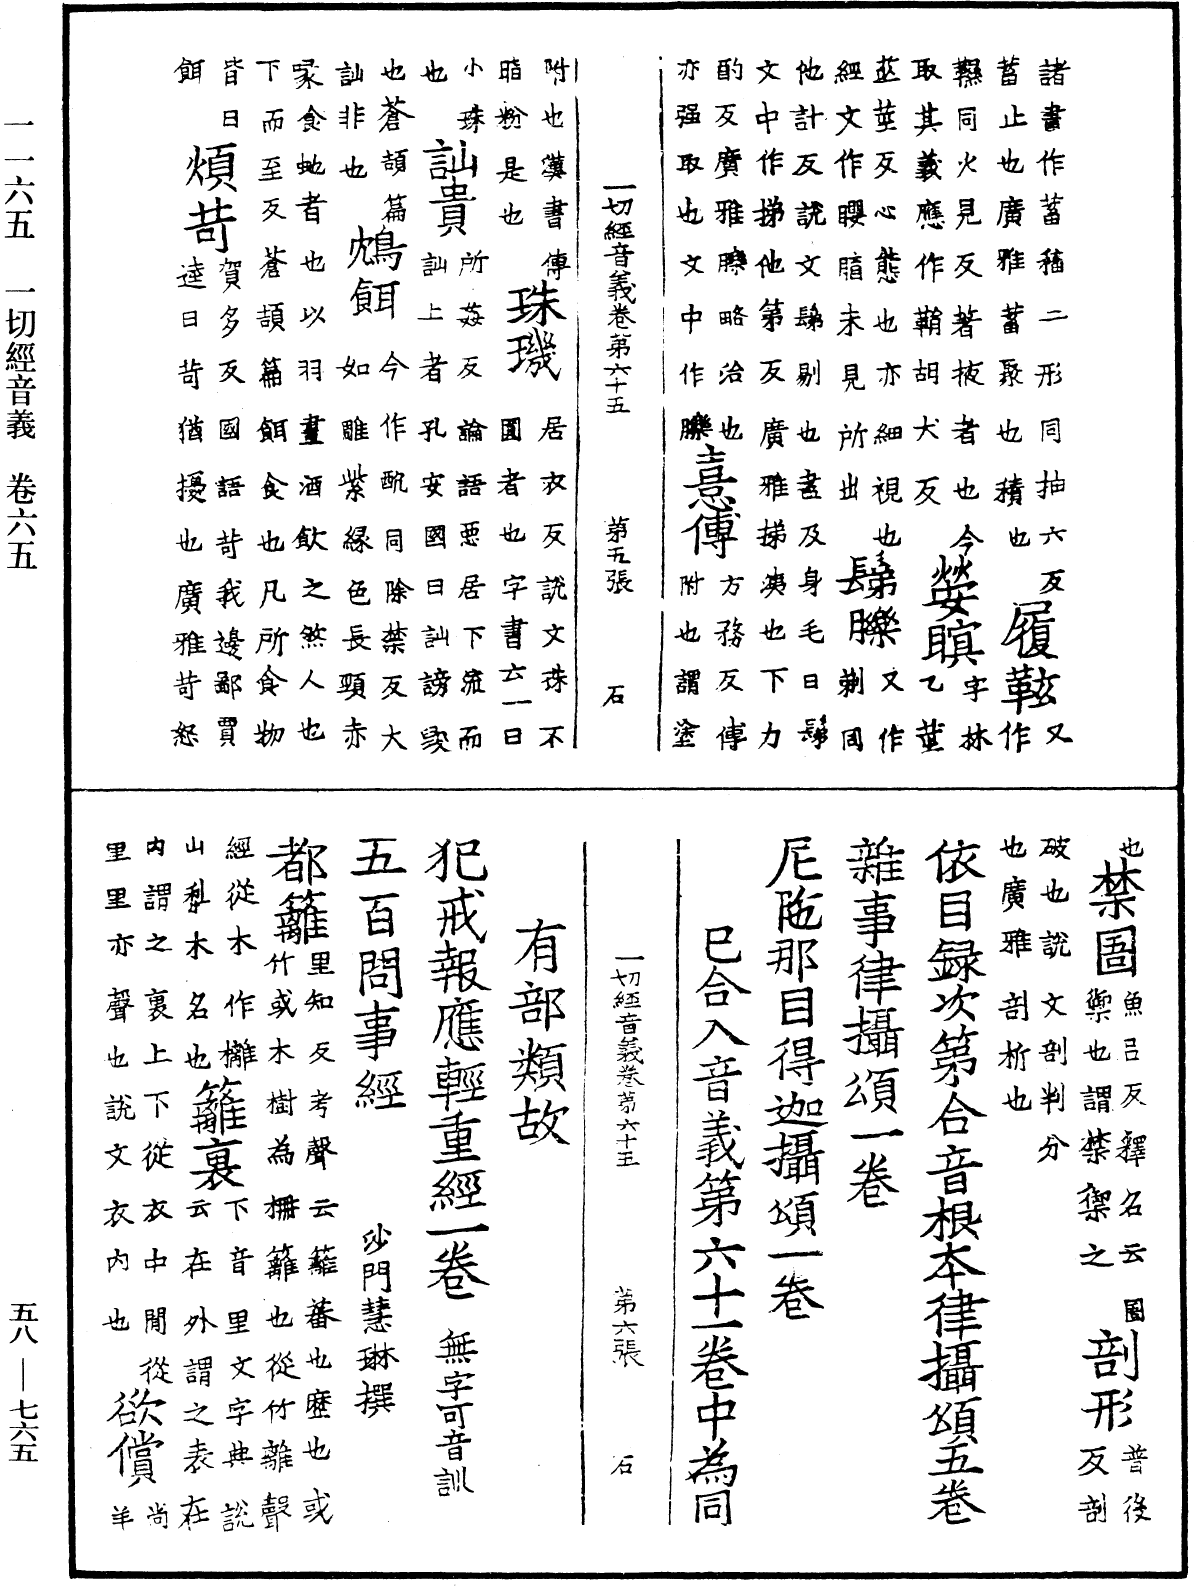 一一六五 一切經音義 卷六五
五八 — 七六五
諸書作蓄稸二形同抽六反 履鞋 又
蓄止也廣雅蓄聚也積也 作
韅同火見反著掖者也今 字林
取其義應作鞘胡犬反 嫈瞑 乙莖
莁莖反心態也亦細視也 鬀䑎 又作
經文作矎䁤未見所出 剃同
他計反說文鬀剔也盡及身毛曰鬀
文中作挮他第反廣雅挮洟也下力
酌反廣雅䑎略治也 憙傅 方務反傅
亦强取也文中作䑎 附也謂塗
一切經音義卷第六十五 第五張 石
附也漢書傅 珠璣 居衣反說文珠不
脂粉是也 圓者也字書云一曰
小珠 訕貴 所姦反論語惡居下流而
也 訕上者孔安國曰訕謗毀
也蒼頡篇 鴆餌 今作酖同除禁反大
訕非也 如鵰紫緑色長頸赤
喙食虵者也以羽畫酒飲之煞人也
下而至反蒼頡篇餌食也凡所食物
皆曰 煩苛 賀多反國語苛我邊鄙賈
餌 逵曰苛猶擾也廣雅苛怒
也 禁圄 魚吕反釋名云圄 剖形 普後
禦也謂禁禦之 反剖
破也說文剖判分
也廣雅剖析也
依目録次第合音根本律攝頌五卷
雜事律攝頌一卷
尼陁那目得迦攝頌一卷
已合入音義第六十一卷中為同
一切經音義卷第六十五 第六張 石
有部類故
犯戒報應輕重經一卷 無字可音訓
五百問事經 沙門慧琳撰
都籬 里知反考聲云籬蕃也歷也或
竹或木樹為柵籬也從竹離聲
經從木作欐 籬裏 下音里文字典說
山梨木名也 云在外謂之表在
内謂之裏上下從衣中間從 欲償 尚
里里亦聲也說文衣内也 羊